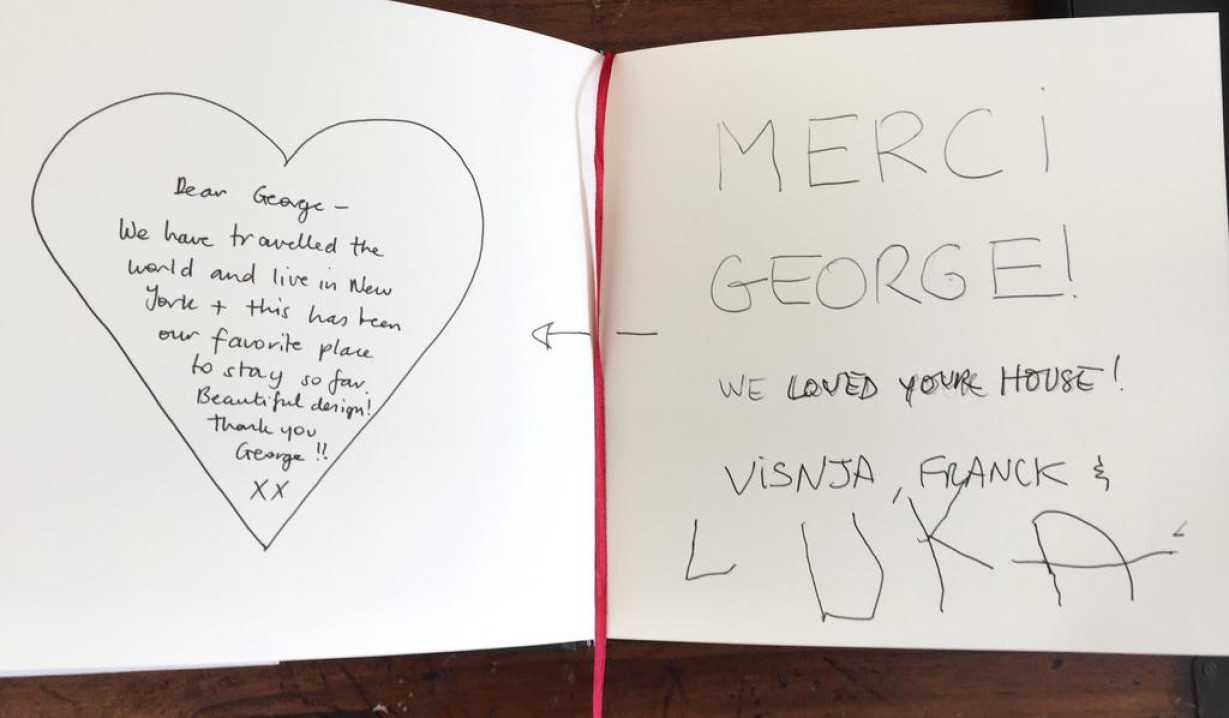 Dear George –
We have travelled the
world and live in New
York + this has been
our favorite place
to stay so far.
Beautiful design!
Thank you
George !!
XX
MERCi
GEORGE!
WE LOVED YOUR HOUSE!
ViSNJA, FRANCK &
LUKA